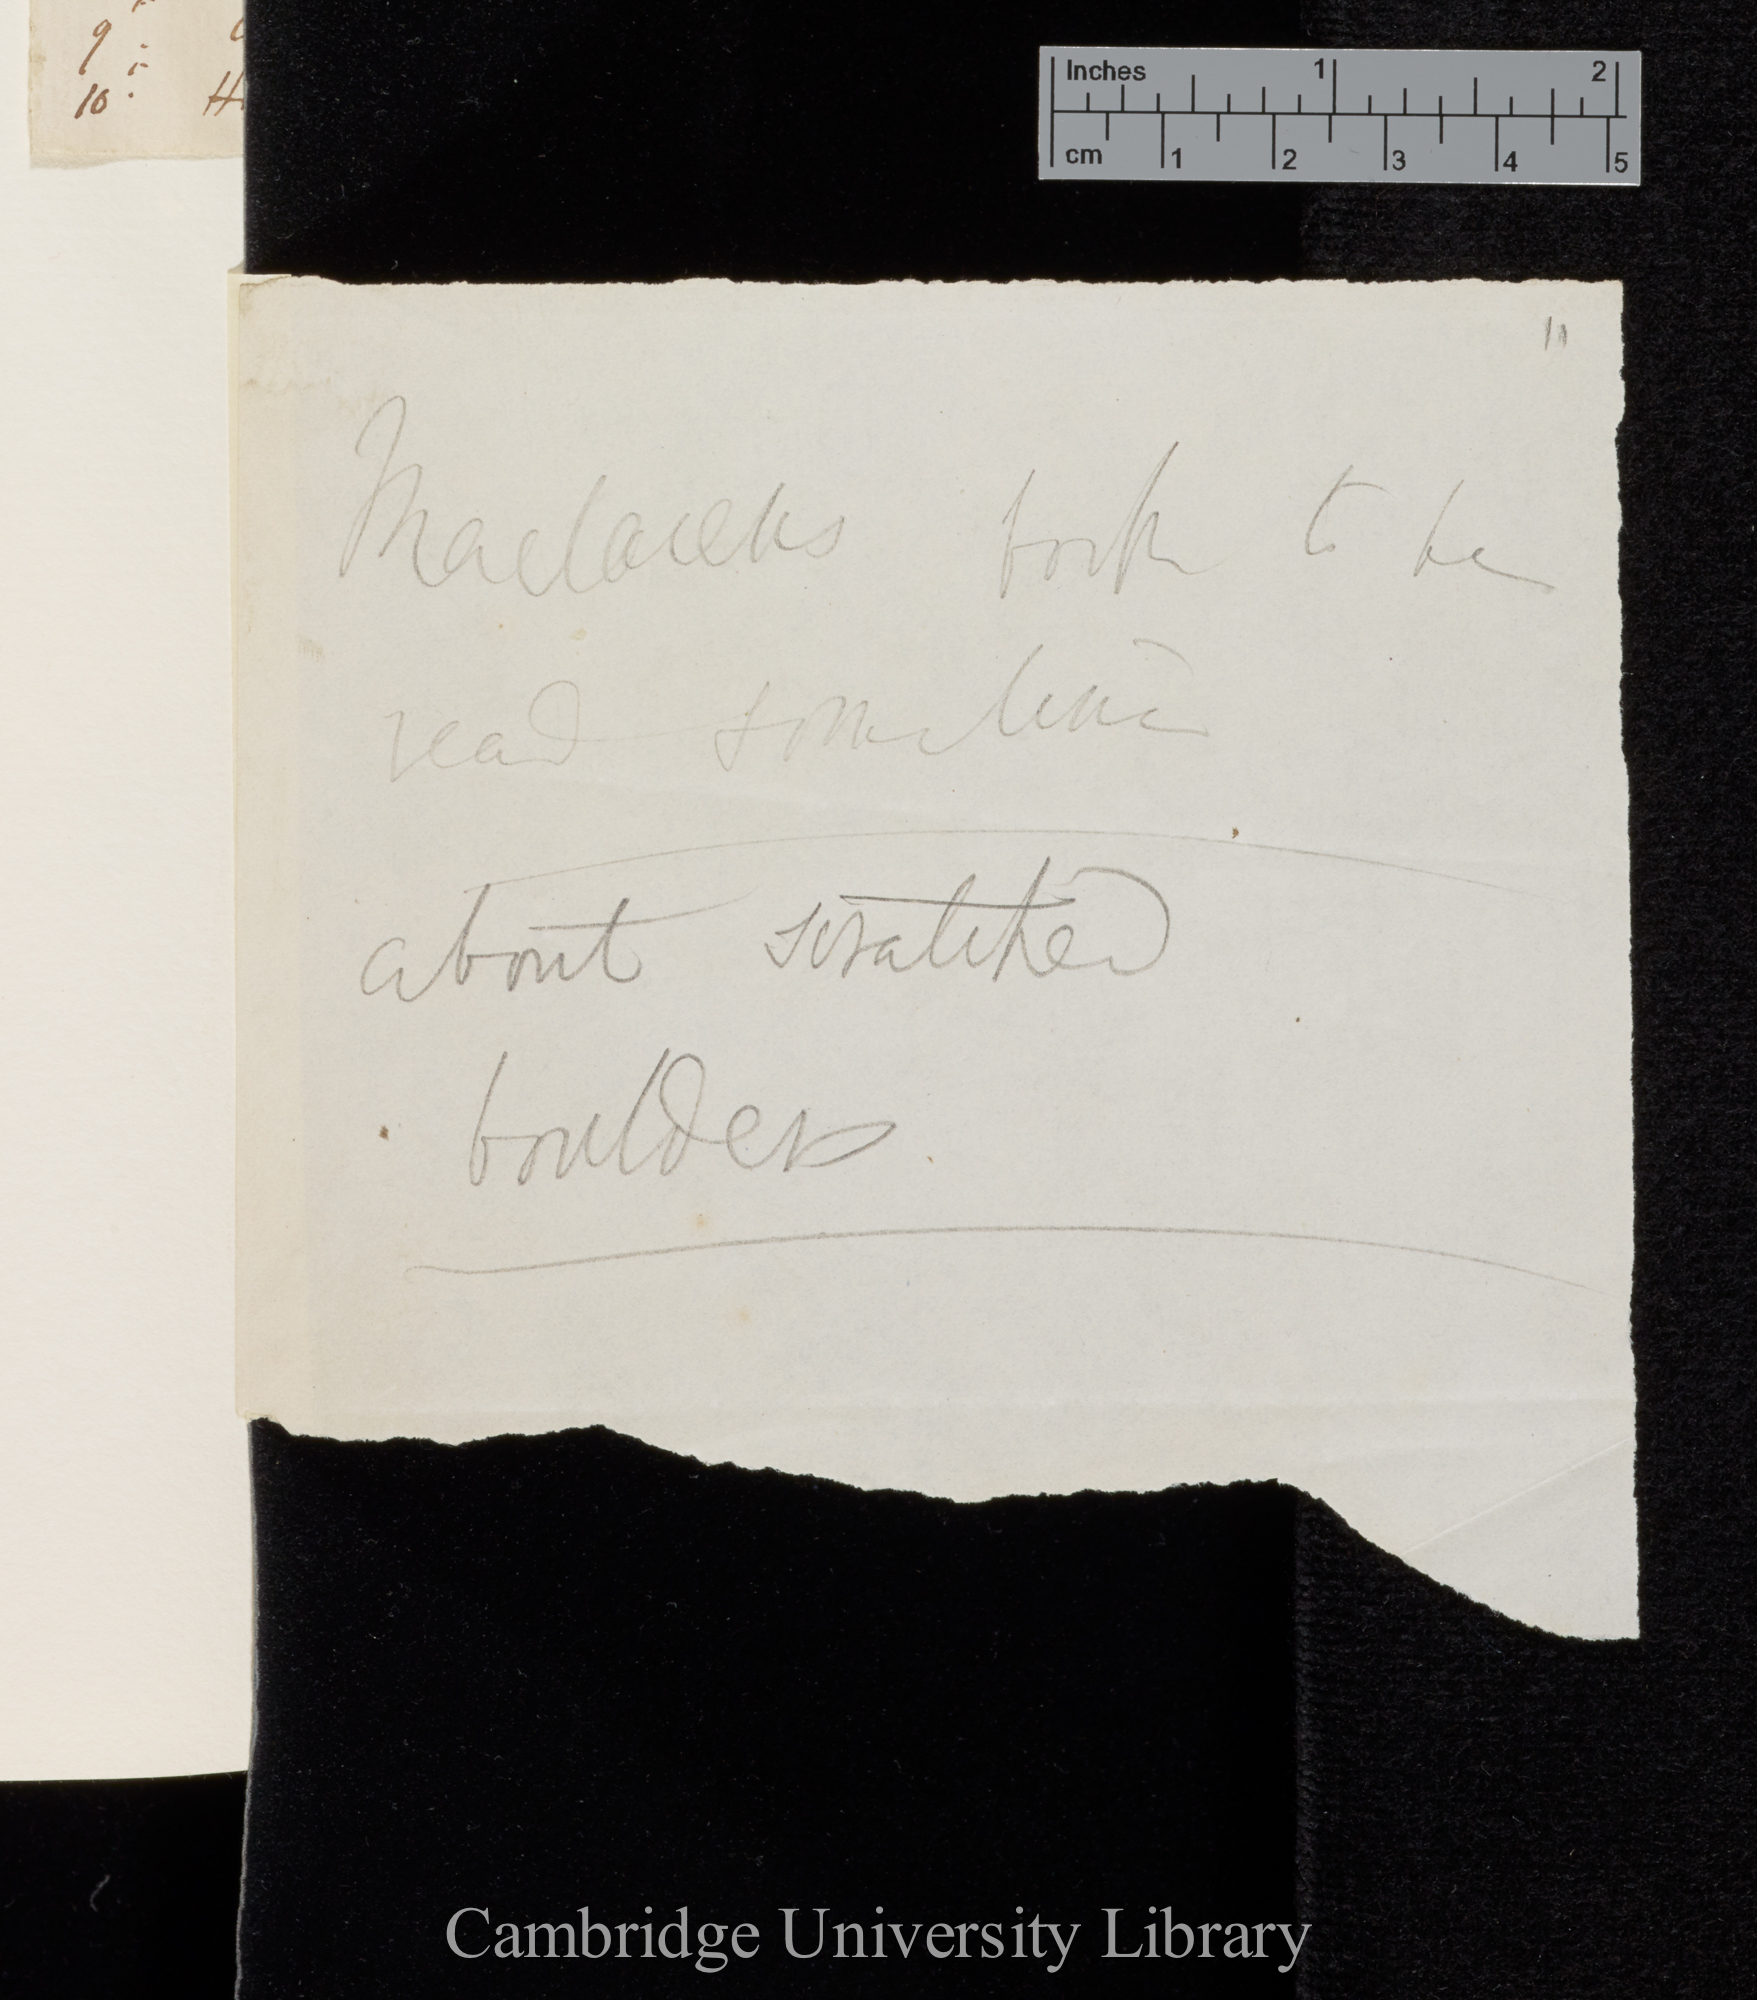 9
10 H
Inches 1 2
cm 1 2 3 4 5
11
Maclarens book to be
read sometime
about scratched
boulders
Cambridge University Library